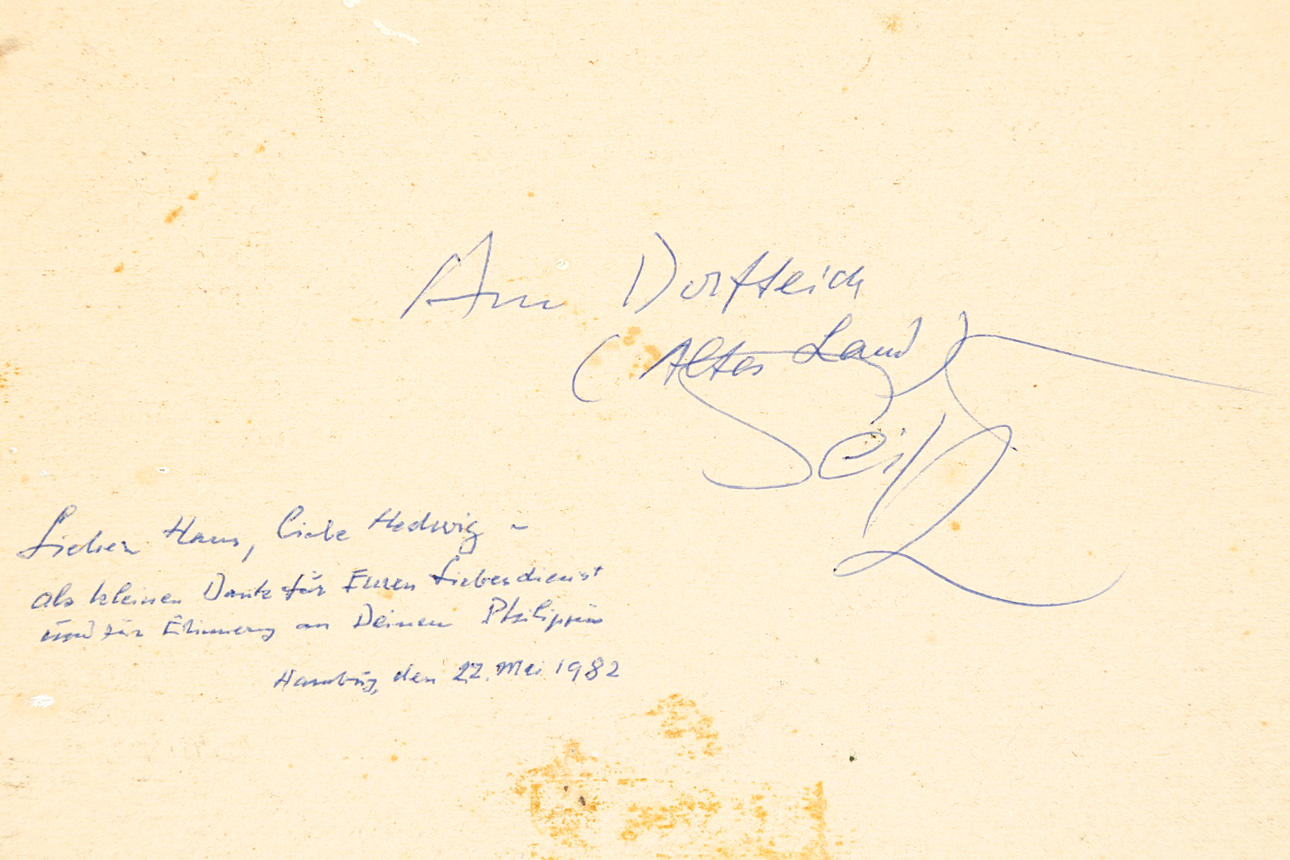 Am Dorfteich
(Altes Land)
Seitz
Lieber Hans, liebe Hedwig –
als kleinen Dank für Euren Liebesdienst
und zur Erinnerung an Deinen
Hamburg, den 22. Mai 1982